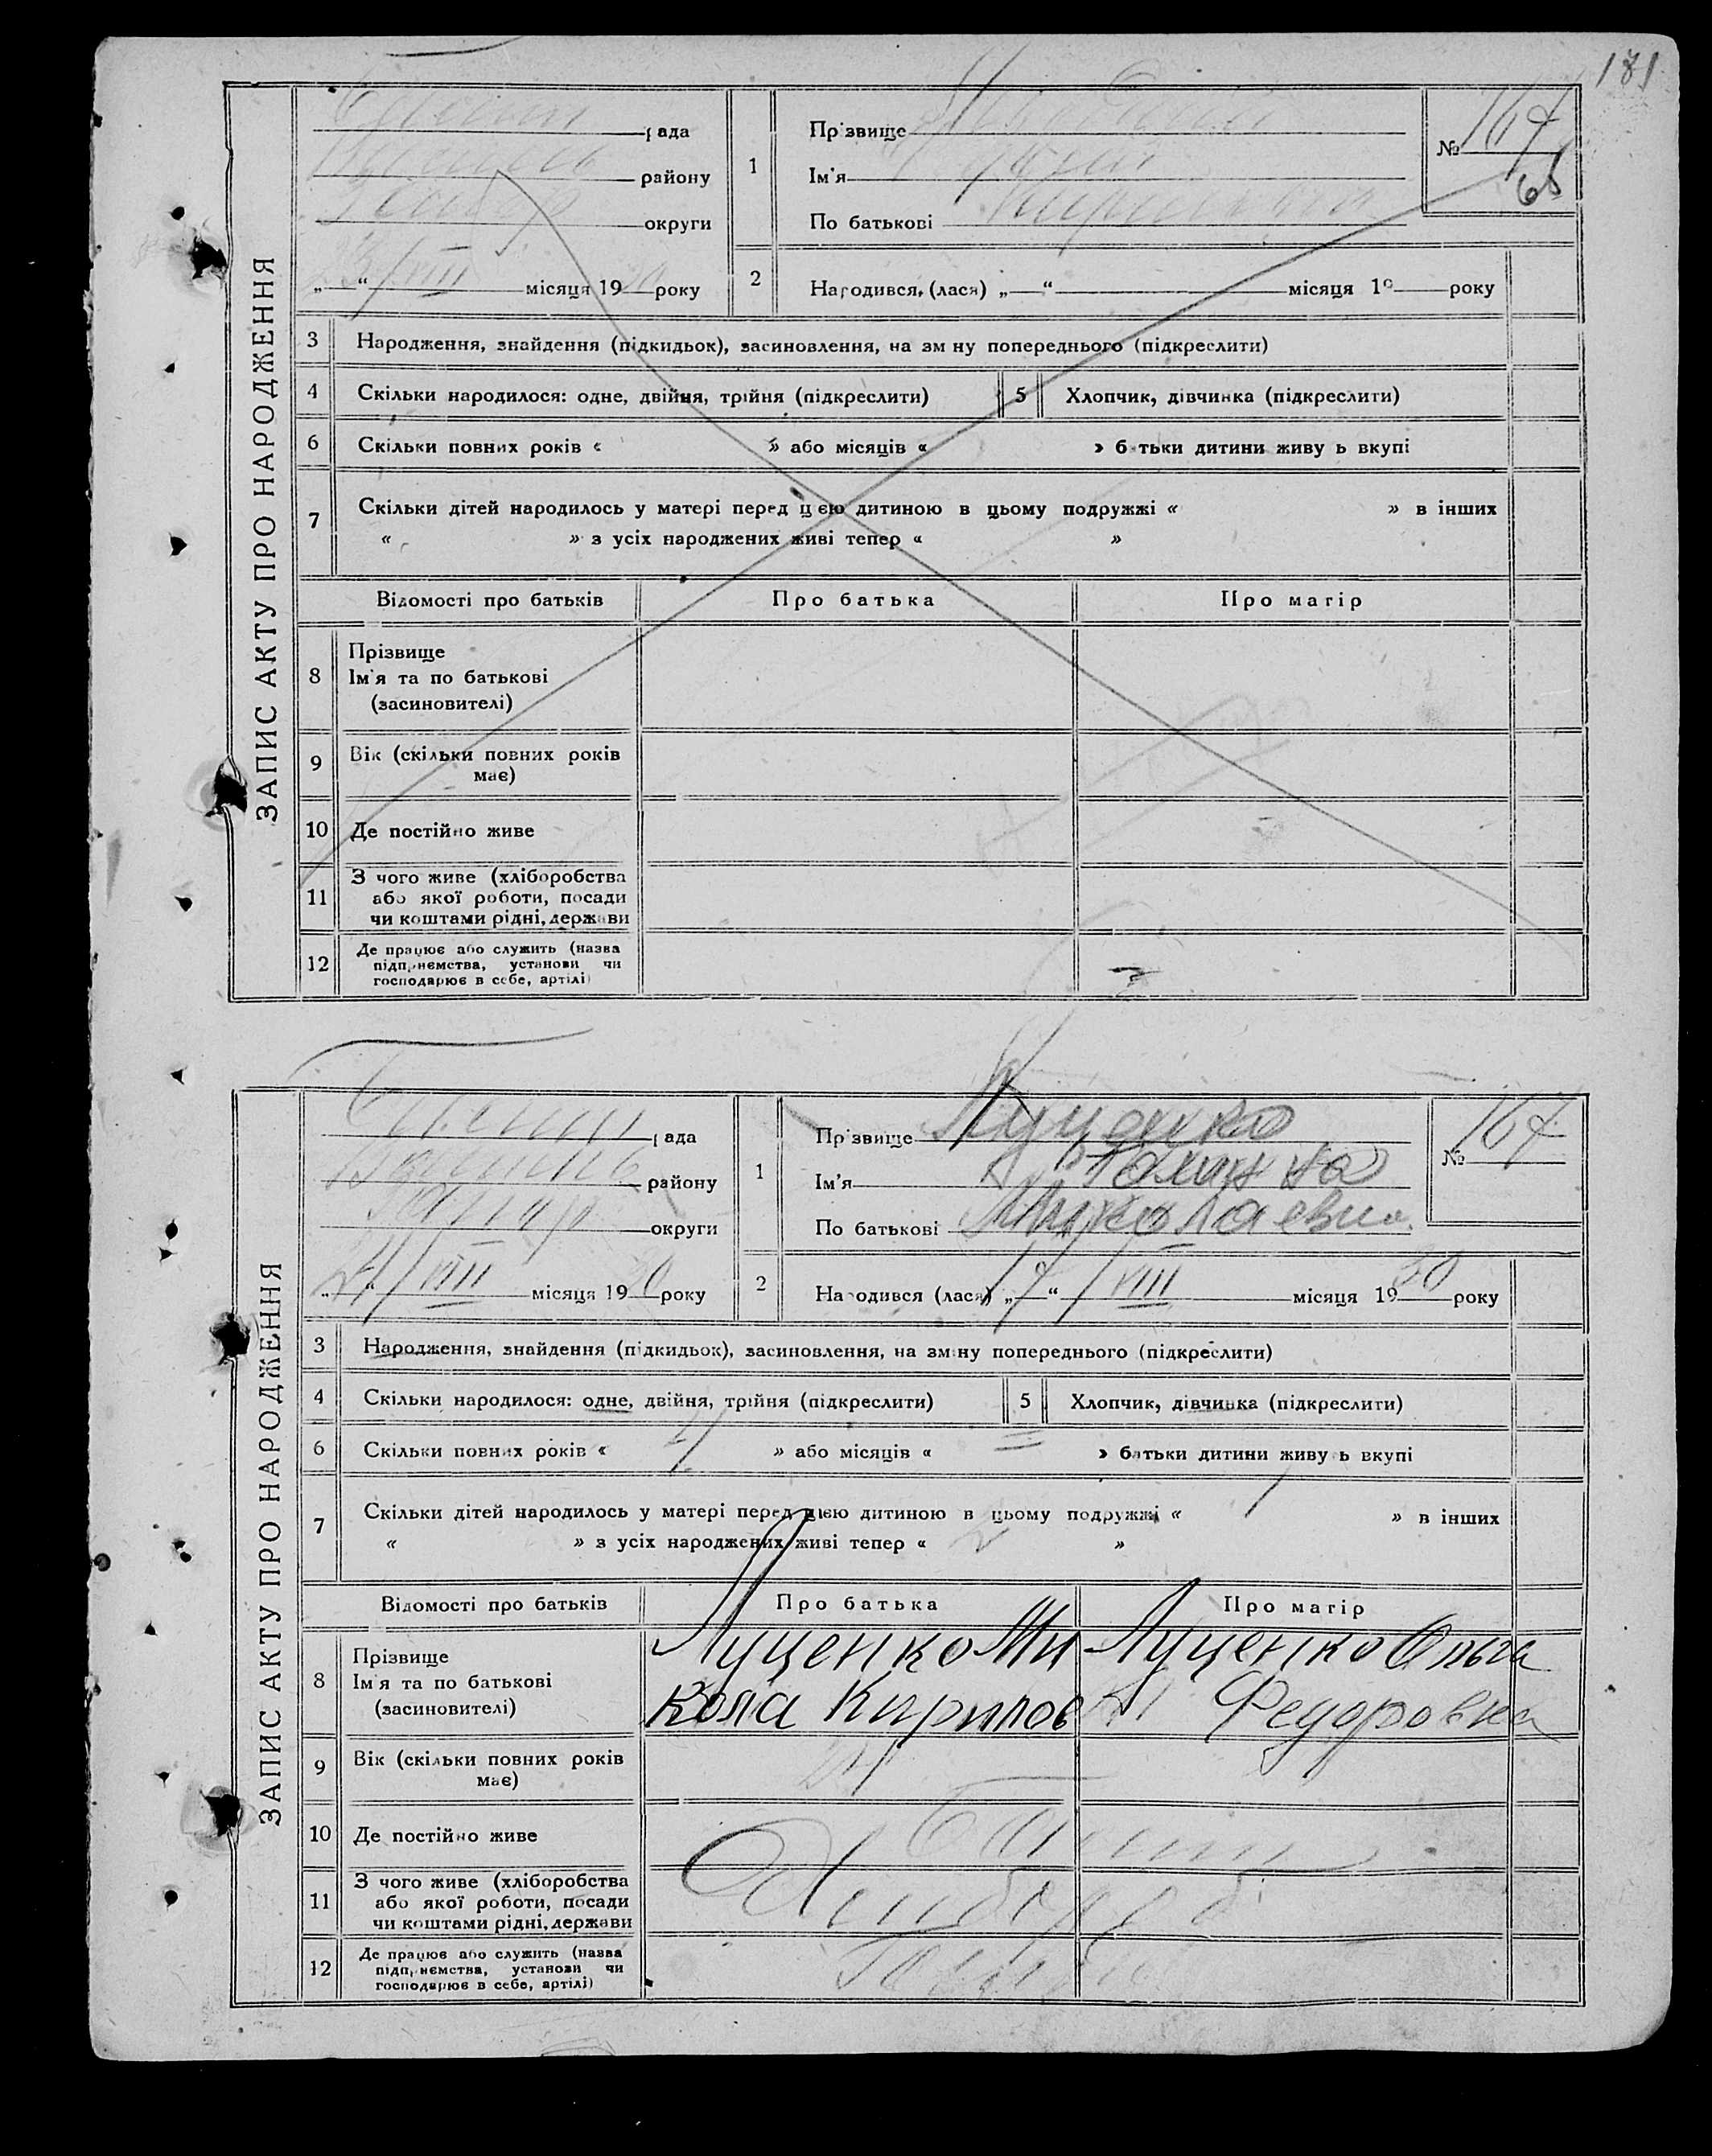 181
ЗАПИС АКТУ ПРО НАРОДЖЕННЯ
рада
району
округи
23/VIII місяця 19 року
1
Прізвище
Ім'я
По батькові
№ 167
66
2
Народився, (лася) „—“ місяця 19 року
3 Народження, знайдення (підкидьок), засиновлення, на зміну попереднього (підкреслити)
4 Скільки народилося: одне, двійня, трійня (підкреслити) 5 Хлопчик, дівчинка (підкреслити)
6 Скільки повних років « » або місяців « » батьки дитини живуть вкупі
7 Скільки дітей народилось у матері перед цією дитиною в цьому подружжі « » в інших
« » з усіх народжених живі тепер « »
Відомості про батьків Про батька Про матір
8 Прізвище
Ім'я та по батькові
(засиновителі)
9 Вік (скільки повних років
має)
10 Де постійно живе
11 З чого живе (хліборобства
або якої роботи, посади
чи коштами рідні, держави
12 Де працює або служить (назва
підприємства, установи чи
господарює в себе, артілі)
ЗАПИС АКТУ ПРО НАРОДЖЕННЯ
рада
району
округи
VIII місяця 1930 року
1
Прізвище Луценко
Ім'я
По батькові Миколаевна
№ 167
2
Народився (лася) „17“ VIII місяця 1930 року
3 Народження, знайдення (підкидьок), засиновлення, на зміну попереднього (підкреслити)
4 Скільки народилося: одне, двійня, трійня (підкреслити) 5 Хлопчик, дівчинка (підкреслити)
6 Скільки повних років « 4 » або місяців « — » батьки дитини живуть вкупі
7 Скільки дітей народилось у матері перед цією дитиною в цьому подружжі « 1 » в інших
« » з усіх народжених живі тепер « 2 »
Відомості про батьків Про батька Про матір
8 Прізвище
Ім'я та по батькові
(засиновителі)
Луценко Ми
кола Кирилов
Луценко Ольга
Федоровна
9 Вік (скільки повних років
має)
10 Де постійно живе
11 З чого живе (хліборобства
або якої роботи, посади
чи коштами рідні, держави
12 Де працює або служить (назва
підприємства, установи чи
господарює в себе, артілі)